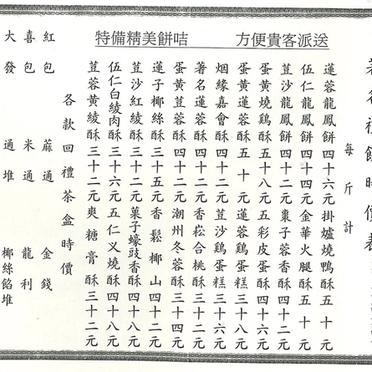 送派客貴便方
咭餅美精備特
每斤計
蓮蓉龍鳳餅四十六元 掛爐燒鴨酥五十元
伍仁龍鳳餅四十四元 金華火腿酥五十元
荳沙龍鳳餅四十二元 棗子蓉香酥四十六元
蛋黃燒鷄酥五十八元 五彩皮蛋酥四十六元
蛋黃蓮蓉酥五十元 蓮蓉鷄蛋糕三十六元
烟緣嘉會酥四十二元 荳沙鷄蛋糕三十六元
著名蓮蓉酥四十二元 香崧合桃酥三十四元
蛋黃荳蓉酥四十二元 潮州冬蓉酥三十四元
蓮子椰絲酥三十五元 香鬆椰山四十二元
荳沙紅綾酥三十二元 菓子蠔豉香酥四十二元
伍仁白綾肉酥三十六元 五仁乂燒酥四十八元
荳蓉黃綾酥三十二元 爽糖膏酥三十二元
各款回禮茶盒時價
紅包 蔴通 金錢
喜包 米通 龍利
大發 通堆 椰絲餡堆